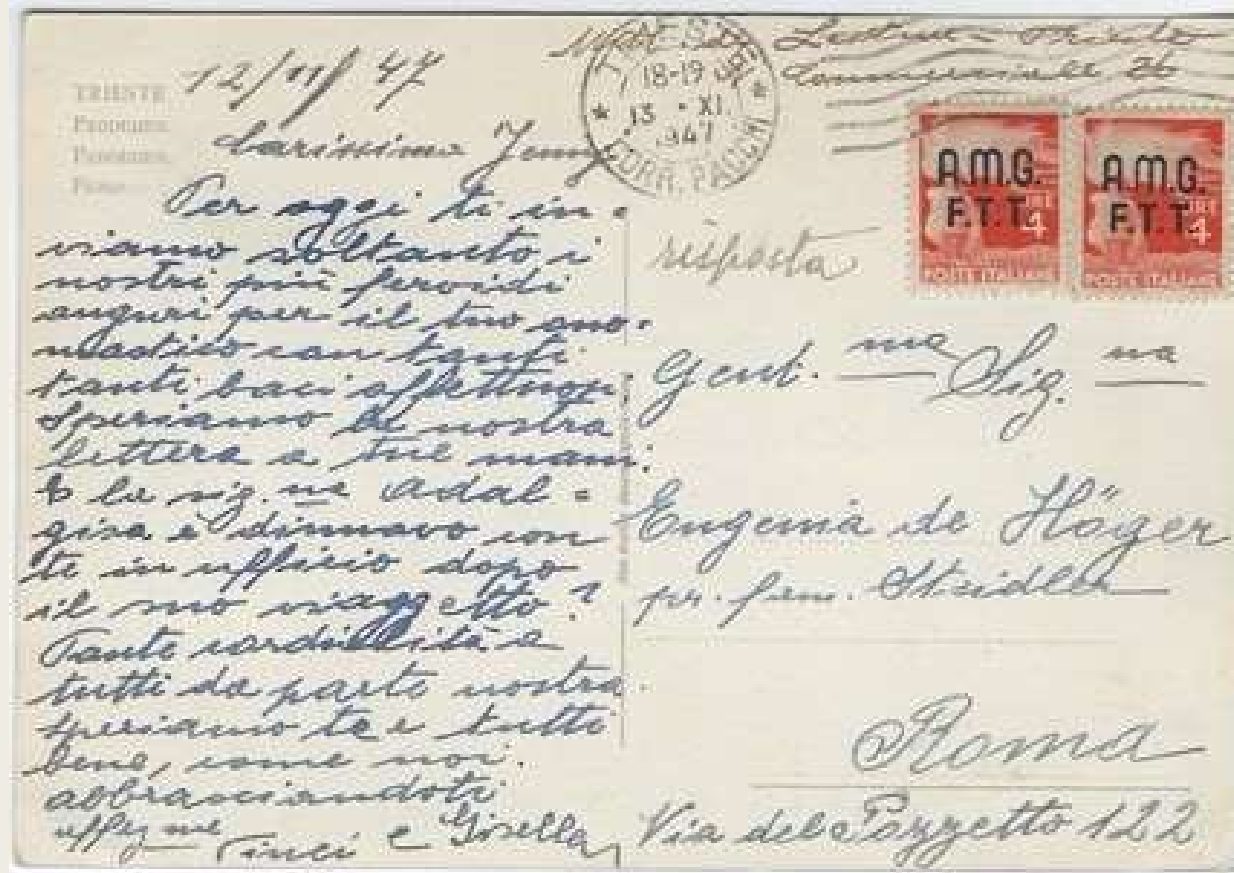 TRIESTE
Panorama.
Panorama.
12/11/47
Carissima Jenny
Per oggi ti in=
viamo soltanto i
nostri più fervidi
auguri per il tuo ono=
mastico con tanti
tanti baci affettuosi.
Speriamo la nostra
lettera a tue mani.
E la sig.na Adal=
gisa è dinnovo con
te in ufficio dopo
il suo viaggetto?
Tante cordialità a
tutti da parte nostra
speriamo te e tutti
bene, come noi.
abbracciandoti
affez me
Pinci e Gisella
Trieste
Commerciale 26
TRIESTE
18-19
13 · XI.
1947
CORR. PACCHI
A.M.G.
F.T.T.
LIRE 4
POSTE ITALIANE
A.M.G.
F.T.T.
LIRE 4
POSTE ITALIANE
risposta
Gent. ma Sig. na
Eugenia de Höger
pr. fam. Steidler
Roma
Via del Pozzetto 122